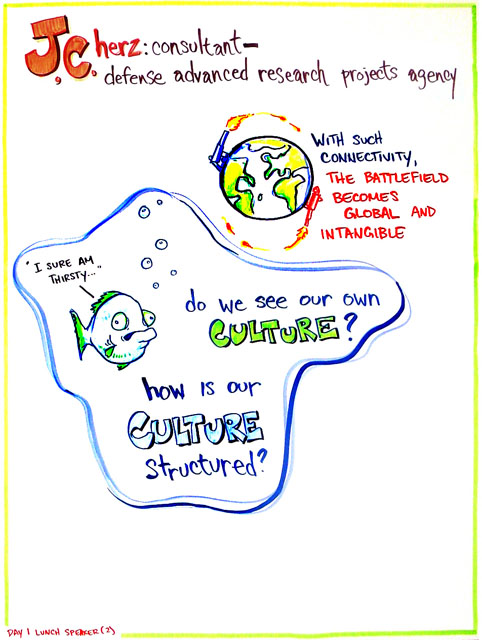 J.C. herz: consultant—
defense advanced research projects agency
WITH SUCH
CONNECTIVITY,
THE BATTLEFIELD
BECOMES
GLOBAL AND
INTANGIBLE
"I SURE AM
THIRSTY..."
do we see our own
CULTURE?
how is our
CULTURE
structured?
DAY 1 LUNCH SPEAKER (2)